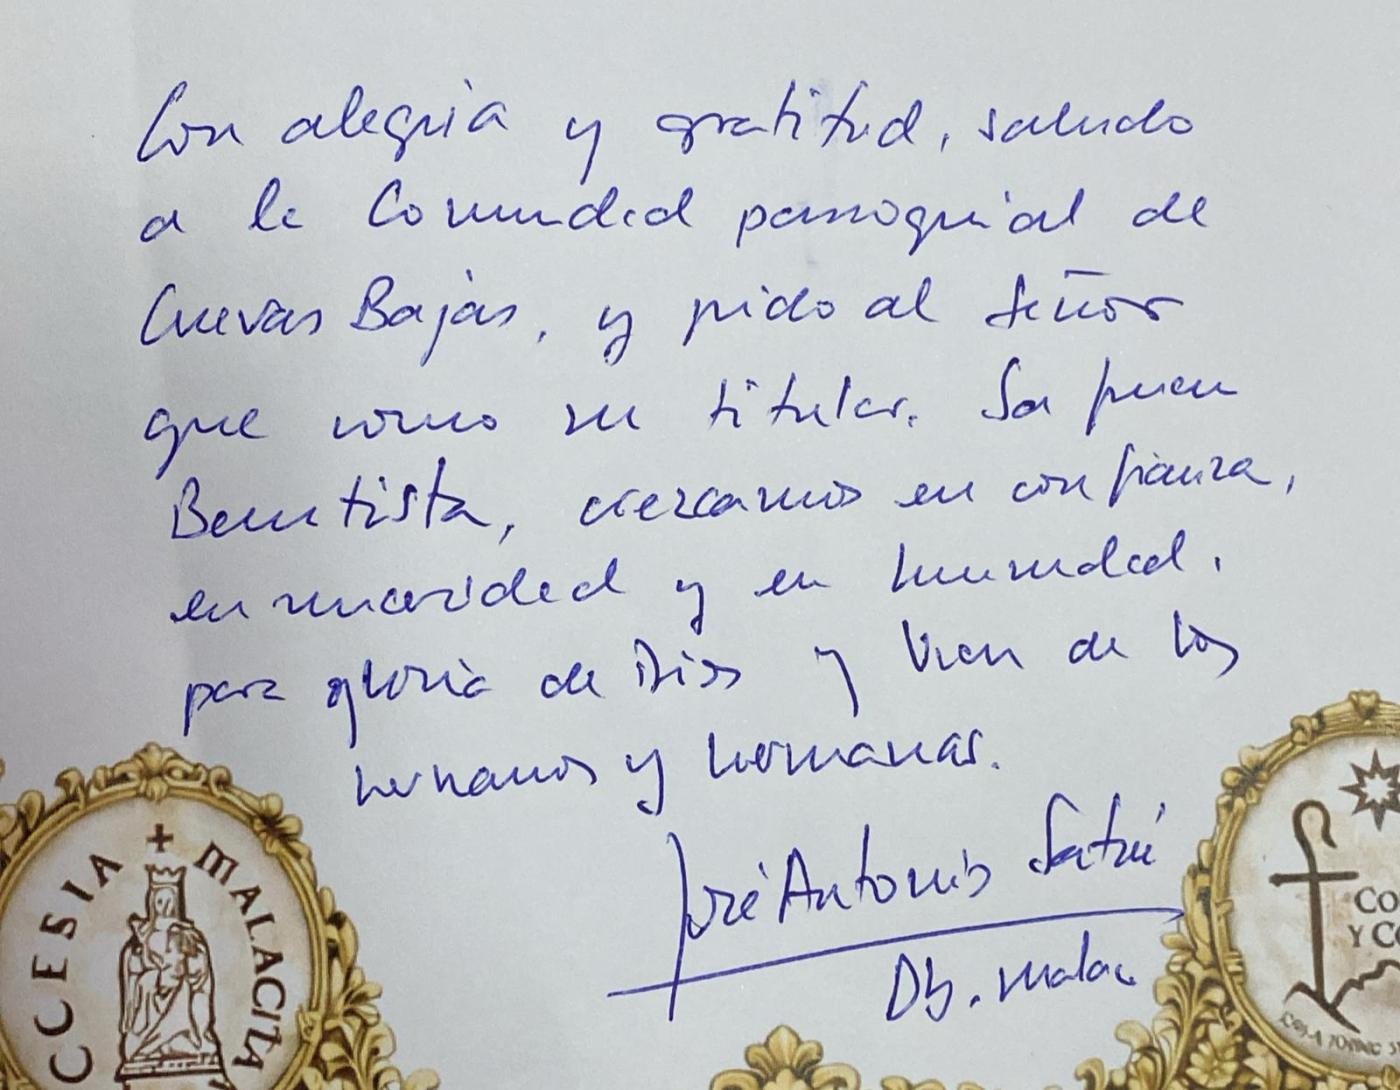 Con alegria y gratitud, saludo
a la Comunidad parroquial de
Cuevas Bajas, y pido al Señor
que como su titular. San Juan
Bautista, crezcamos en confianza,
en y en humildad.
para gloria de Dios y bien de los
hermanos y hermanas.
José Antonio Satué
Ob. Malaga
CCESIA + MALACITA
CO
Y CO